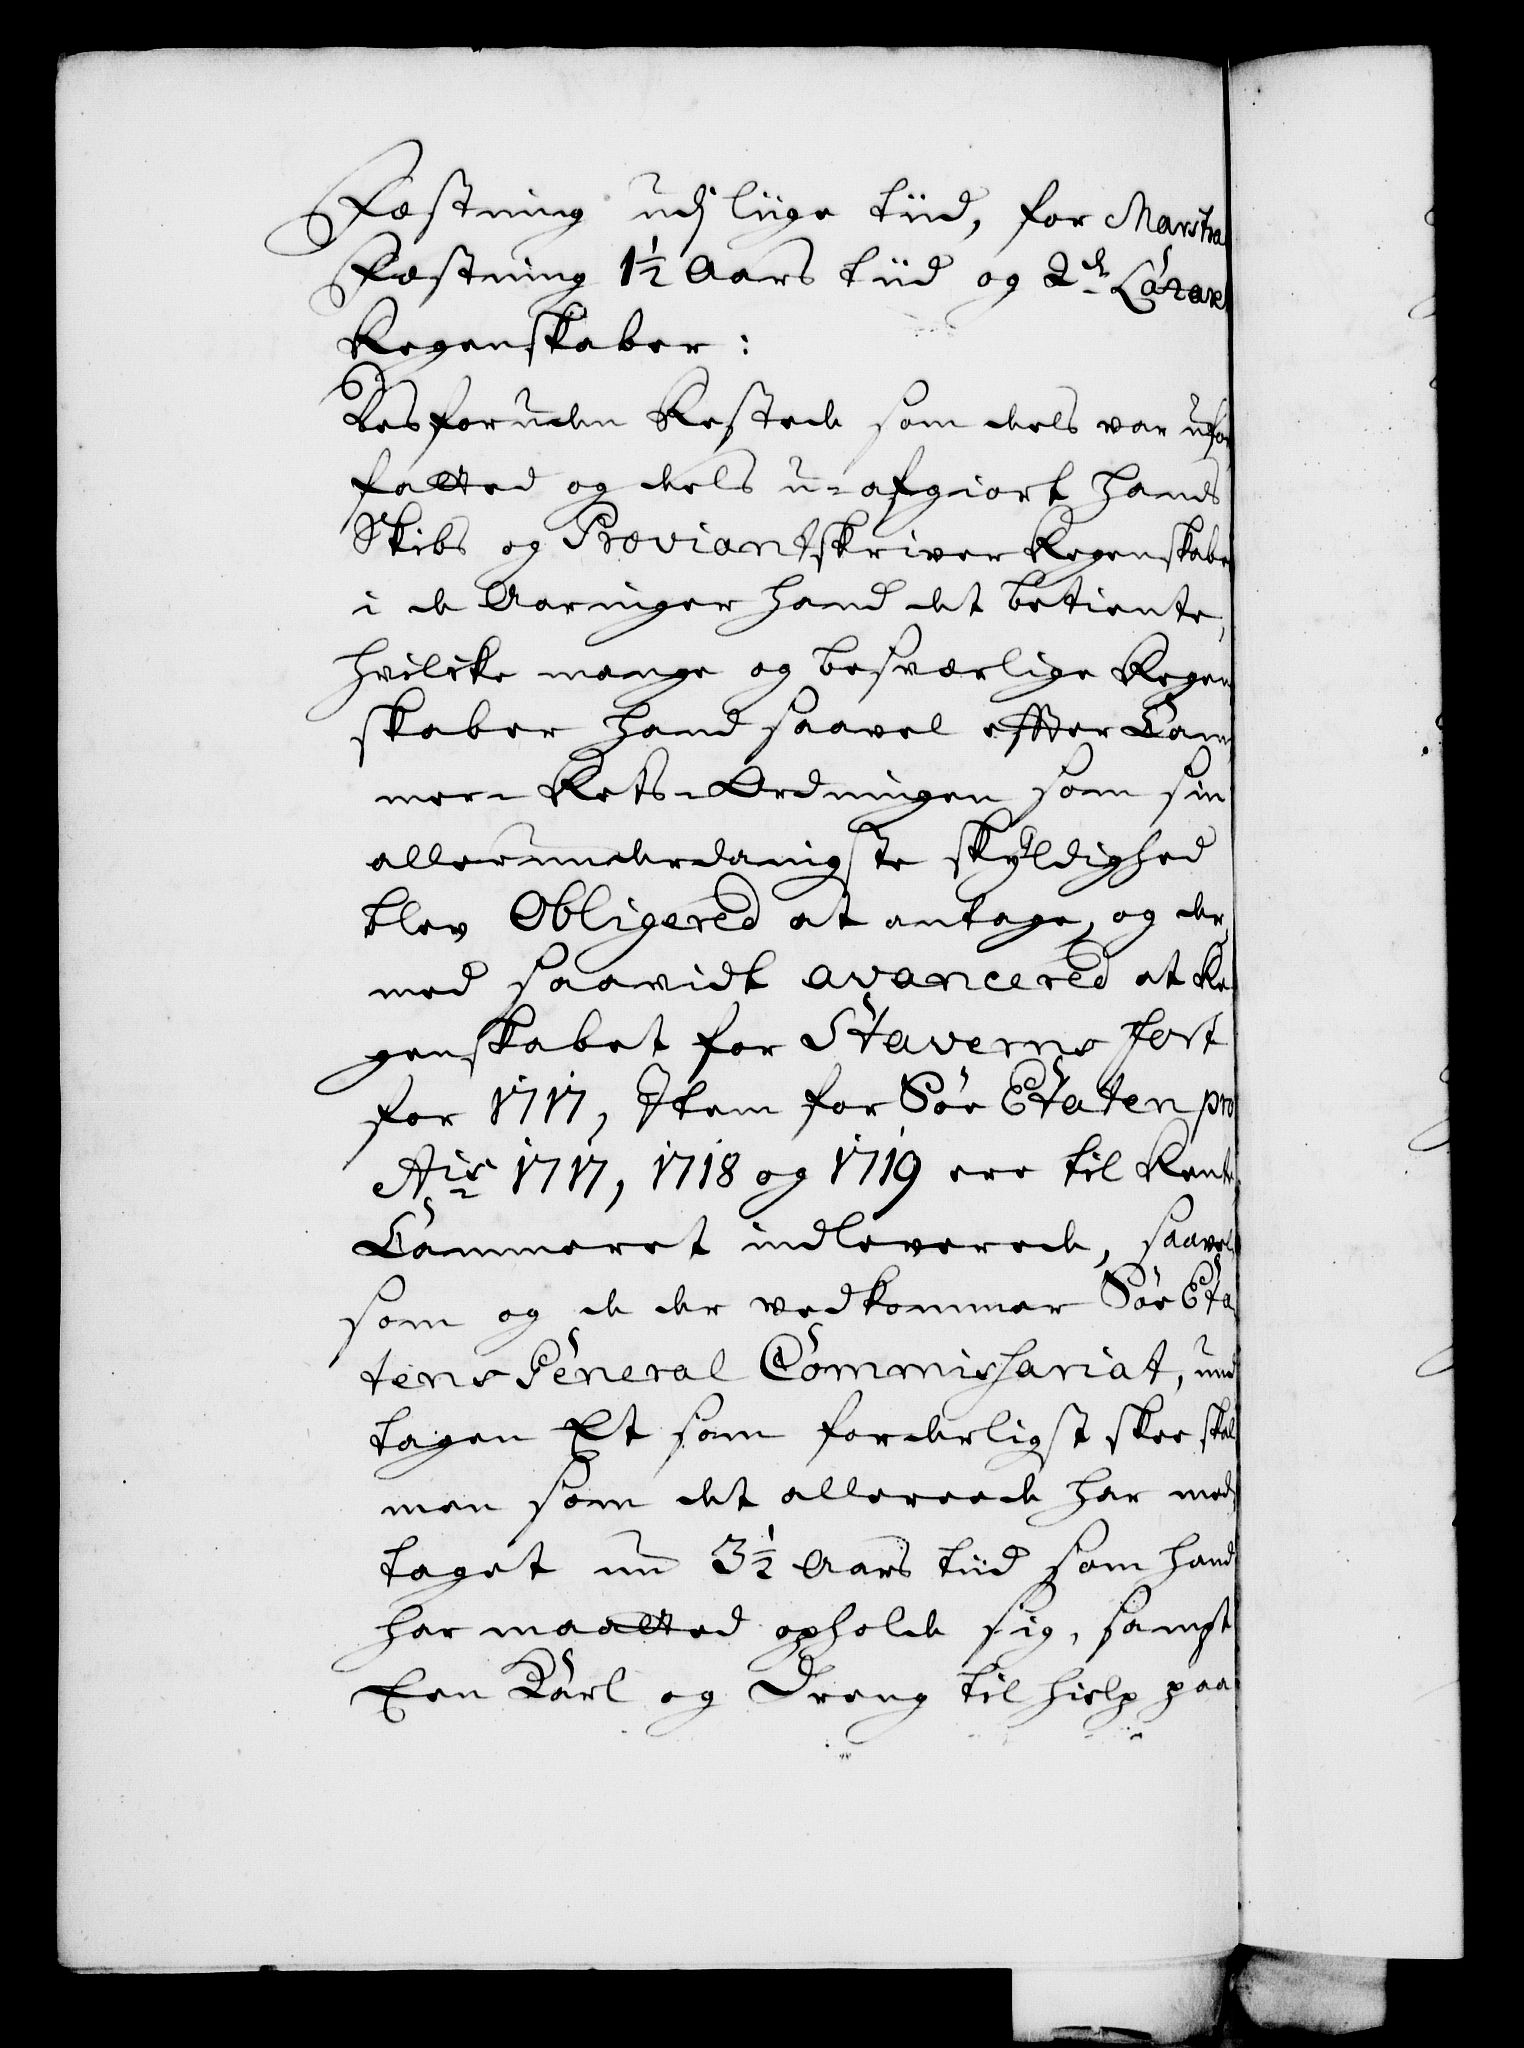 Fæstning udj liige tiid, for Marstra
Fæstning 1½ Aars tiid og 2de Lazaret
Regenskaber:
Desforuden Restede som deels var ufor
fatted og deels u-afgiort hands
Skibs og Proviantskriver Regenskaber
i de Aaringer hand det betiente,
hvilcke mange og besværlige Regen
skaber hand saavel effter Cam
mer-Rets-Ordningen som sin
allerunderdanigste skyldighed
blev Obligered at antage, og der
med saavidt avancered at Re
genskabet for Staverns Fort
for 1717, Item for Søe Etaten pro
Ais 1717, 1718 og 1719 ere til Rente
Cammeret indleverede, saavel
som og de der vedkommer Søe Eta
tens General Commissariat, und
tagen Et som forderligst skee skal
men som det allereede har med
taget nu 3½ Aars tiid som hand
har maatted opholde sig, sampt
Een Karl og Dreng til hielp paa